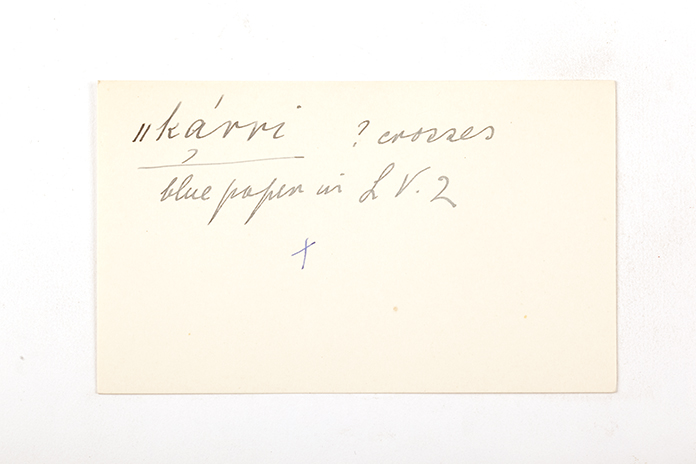 ǁkárri ? crosses
blue paper in L V. 2
+